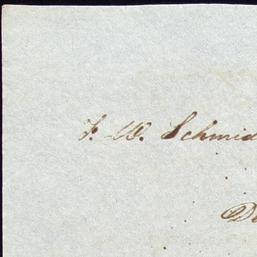 F. W. Schmid
De